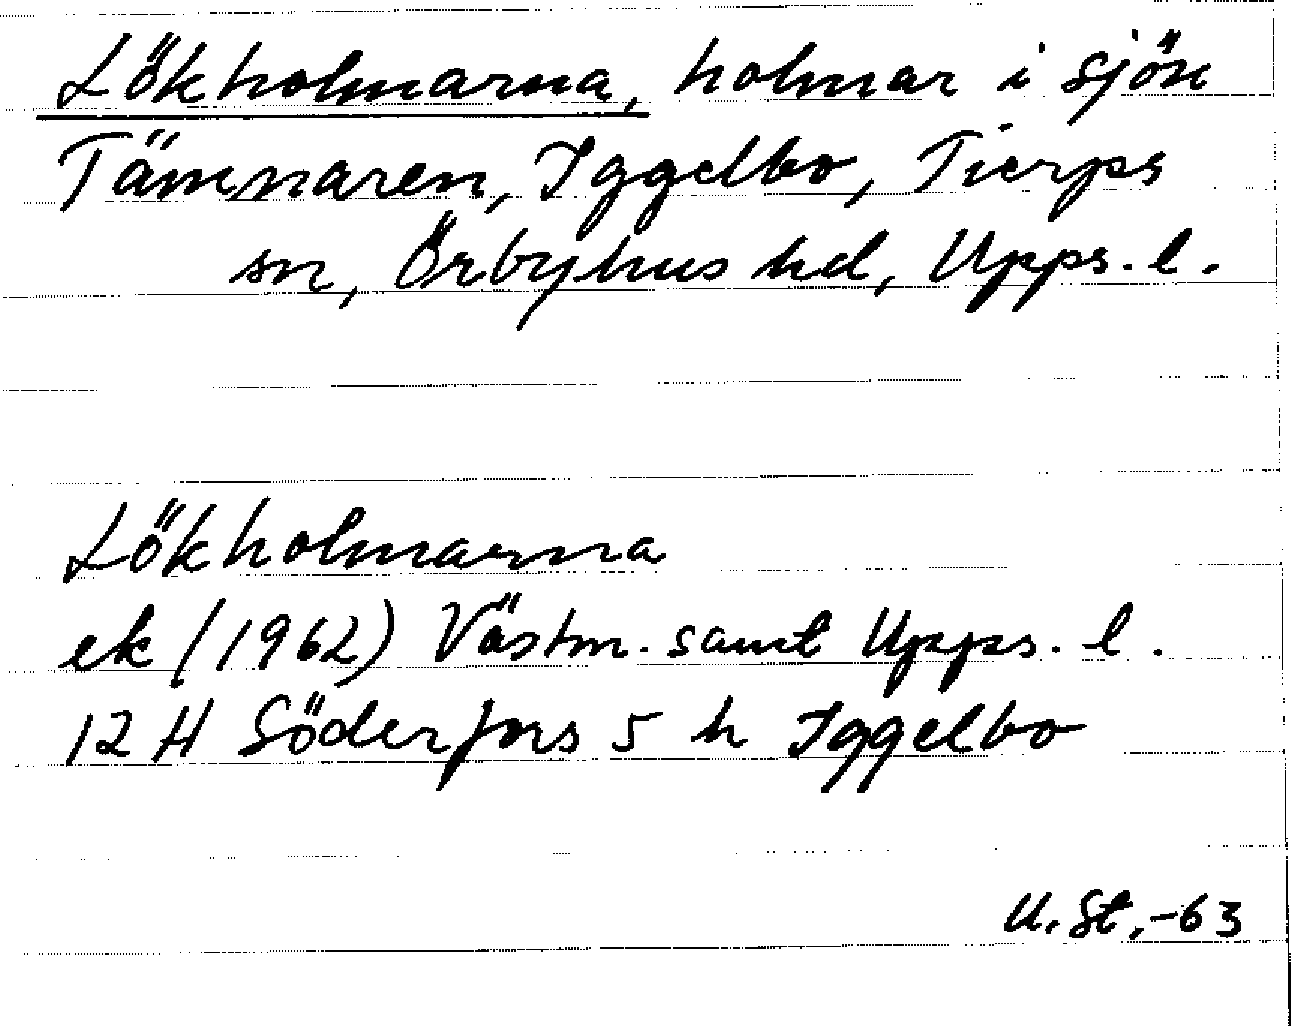 Lökholmarna, holmar i sjön
Tämnaren, Iggelbo, Tierps
sn, Örbyhus hd, Upps. l.
Lökholmarna
ek (1962) Västm. samt Upps. l.
12 H Söderfors 5 h Iggelbo
U. St, -63